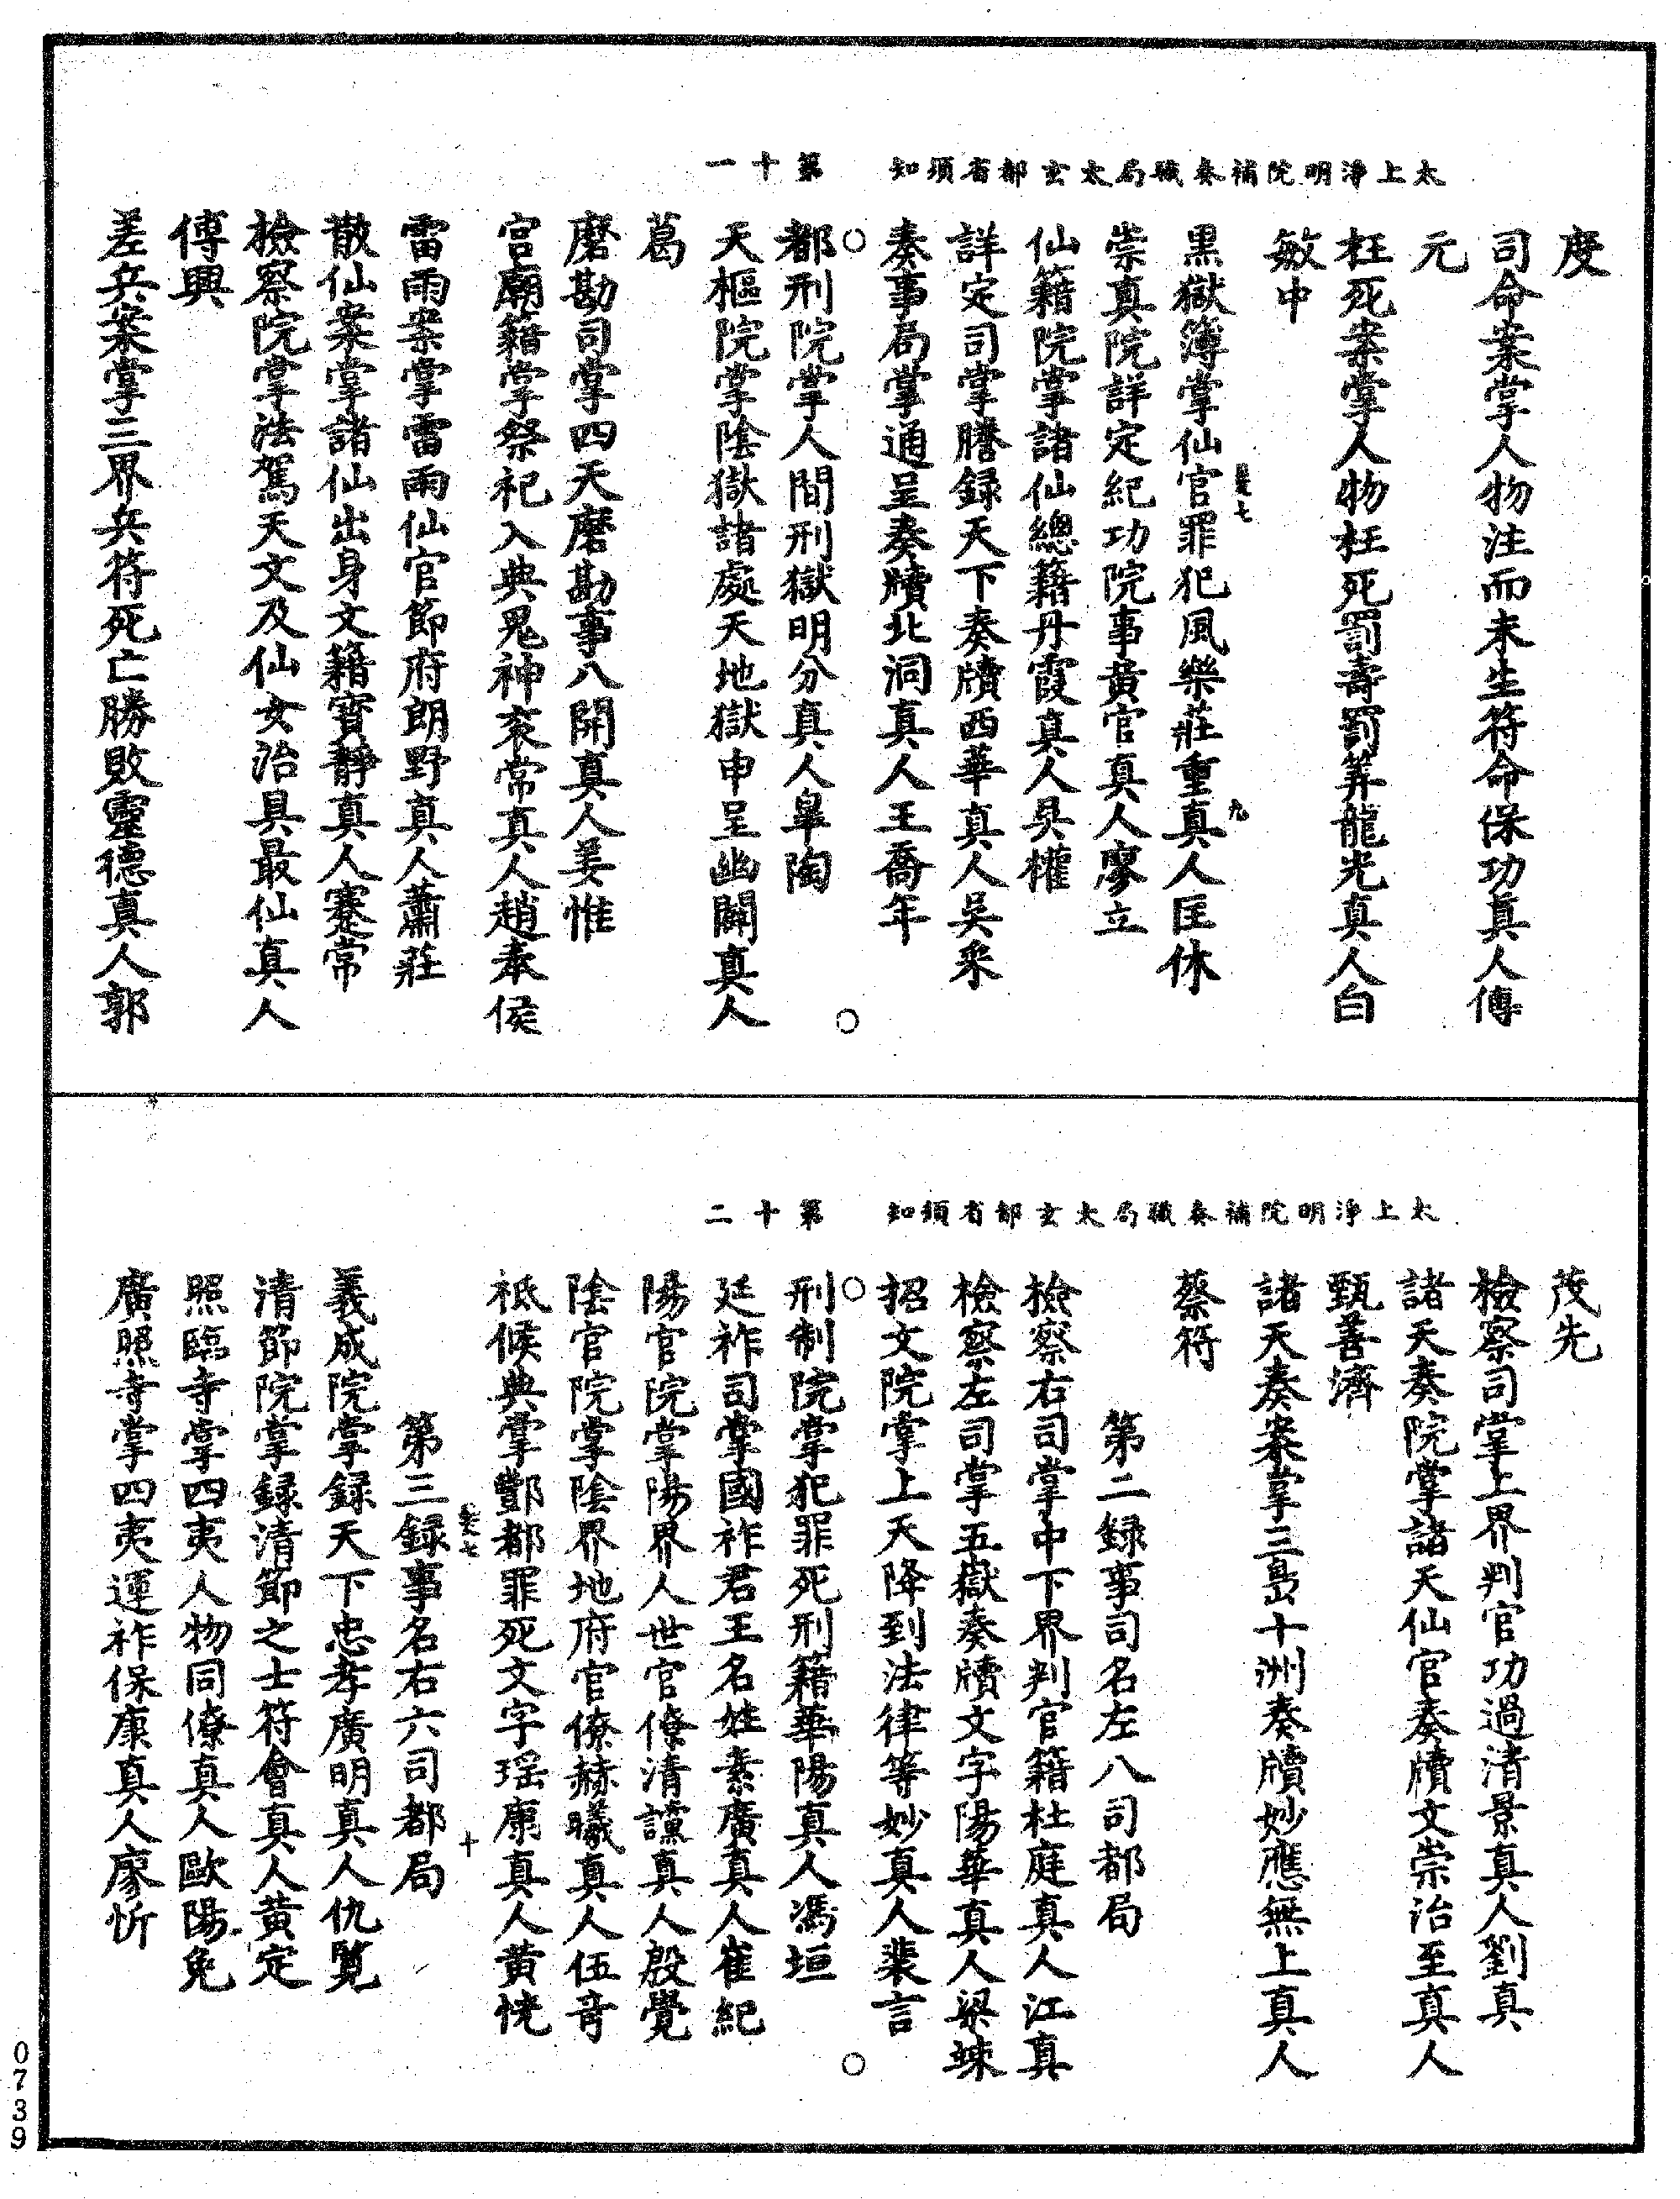 太上淨明院補奏職局太玄都省須知　第十一
度
司命案掌人物注而未生符命保功真人傅
元
枉死案掌人物枉死罰壽罰筭龍光真人白
敏中
黒獄簿掌仙官罪犯風樂莊重真人匡休
崇真院詳定紀功院事黃官真人廖立
仙籍院掌諸仙總籍丹霞真人吳權
詳定司掌謄録天下奏牘西華真人吳采
奏事局掌通呈奏牘北洞真人王喬年
都刑院掌人間刑獄明分真人皐陶
天樞院掌陰獄諸處天地獄申呈幽關真人
葛
磨勘司掌四天磨勘事八開真人姜惟
宫廟籍掌祭祀入典鬼神來常真人趙奉侯
雷雨案掌雷雨仙官節府朗野真人蕭莊
散仙案掌諸仙出身文籍寶靜真人蹇常
檢察院掌法駕天文及仙女治具最仙真人
傅興
差兵案掌三界兵符死亡勝敗靈德真人郭
太上淨明院補奏職局太玄都省須知　第十二
茂先
檢察司掌上界判官功過清景真人劉真
諸天奏院掌諸天仙官奏牘文崇治至真人
甄善濟
諸天奏案掌三島十洲奏牘妙應無上真人
蔡符
第二録事司名左八司都局
檢察右司掌中下界判官籍杜庭真人江真
檢察左司掌五嶽奏牘文字陽華真人梁竦
招文院掌上天降到法律等妙真人裴言
刑制院掌犯罪死刑籍華陽真人馮垣
延祚司掌國祚君王名姓素廣真人崔紀
陽官院掌陽界人世官僚清讜真人殷覺
陰官院掌陰界地府官僚赫曦真人伍奇
祗候典掌酆都罪死文字瑶康真人黄恍
第三録事名右六司都局
義成院掌録天下忠孝廣明真人仇覽
清節院掌録清節之士符會真人黄定
照臨寺掌四夷人物同僚真人歐陽免
廣照寺掌四夷運祚保康真人廖忻
0739